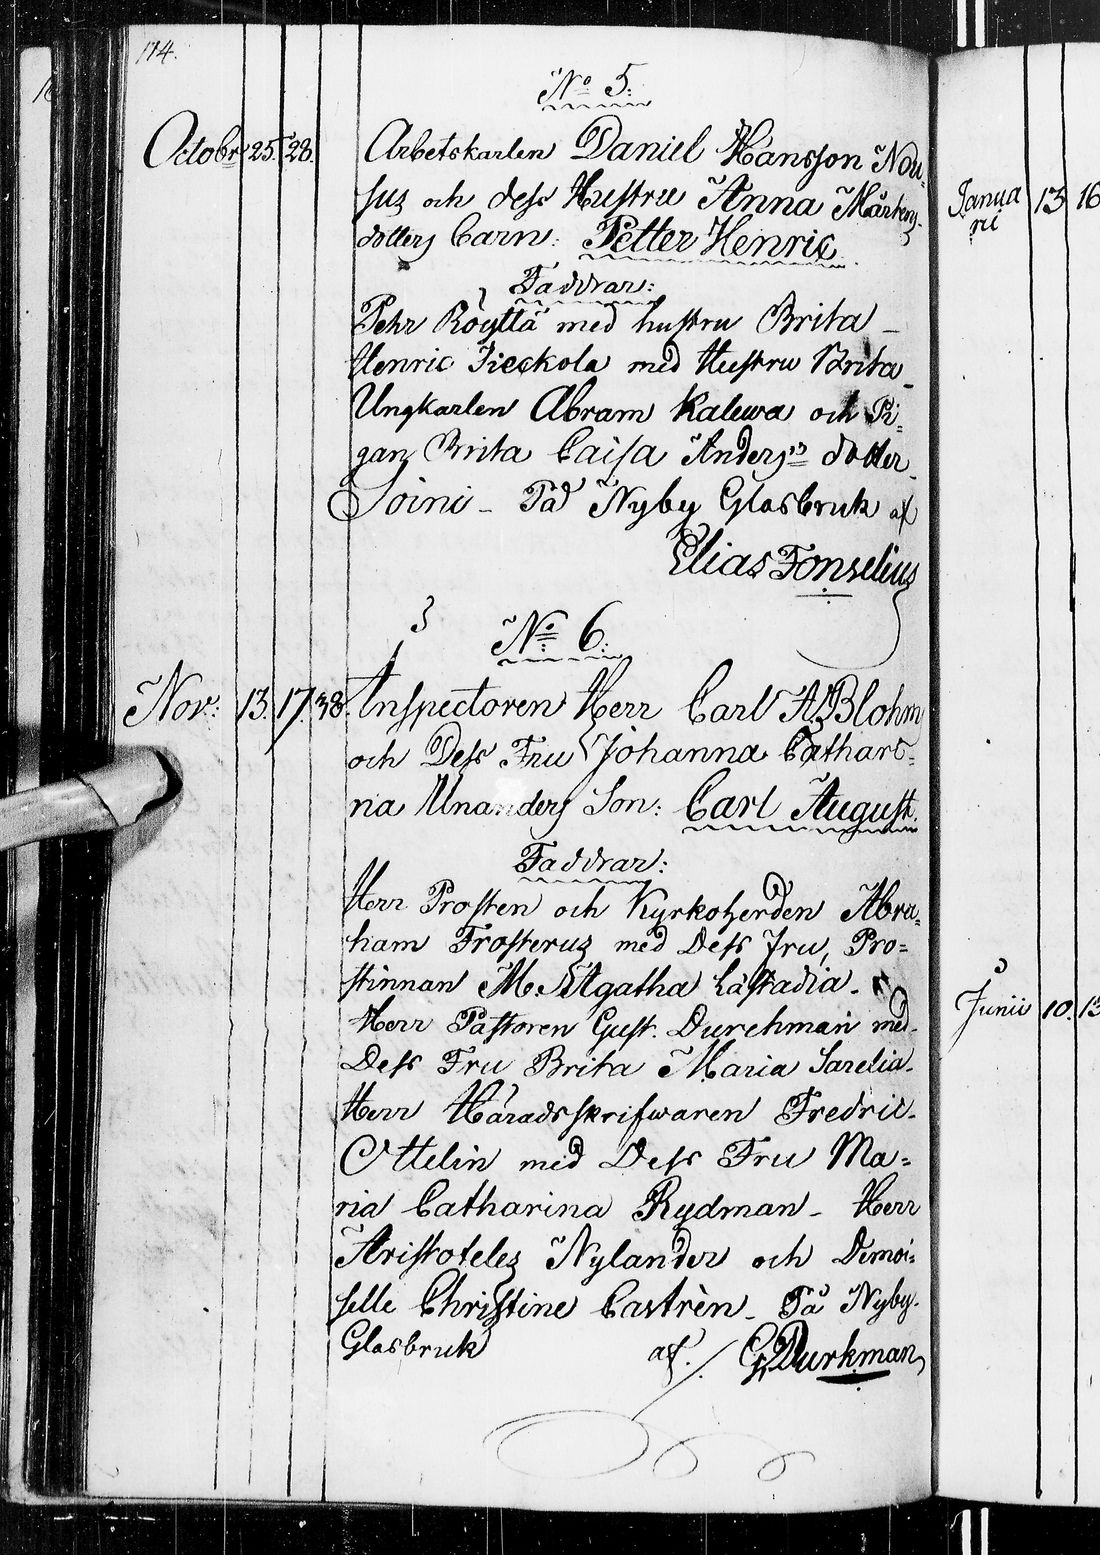 174.
No 5:
Octobr 25. 28. Arbetskarlen Daniel Hansson Nou-
sus och dess Hustru Anna Mårtens-
dotters Barn: Petter Henric
Faddrar:
Pehr Röyttä med hustru Brita -
Henric Jieckola med Hustru Brita -
Ungkarlen Abram Kalewa och Pi-
gan Brita Caisa Anders dotter
Soini - På Nyby Glasbruk af
Elias Fonselius
No 6:
Nov: 13. 17. 38. Inspectoren Herr Carl A. Blohm
och Dess Fru Johanna Cathari-
na Unanders Son: Carl August.
Faddrar:
Herr Prosten och Kyrkoherden Abra-
ham Frosterus med Dess Fru, Pro-
stinnan M. Agatha Lästadia -
Herr Pastoren Gust. Durchman med
Dess Fru Brita Maria Sarelia -
Herr Häradsskrifwaren Fredric
Ottelin med Dess Fru Ma-
ria Catharina Rydman - Herr
Aristoteles Nylander och Demoi-
selle Christine Castrèn - På Nyby
Glasbruk af. G. Durkman
Janua
ri 13 16
Junii 10. 13